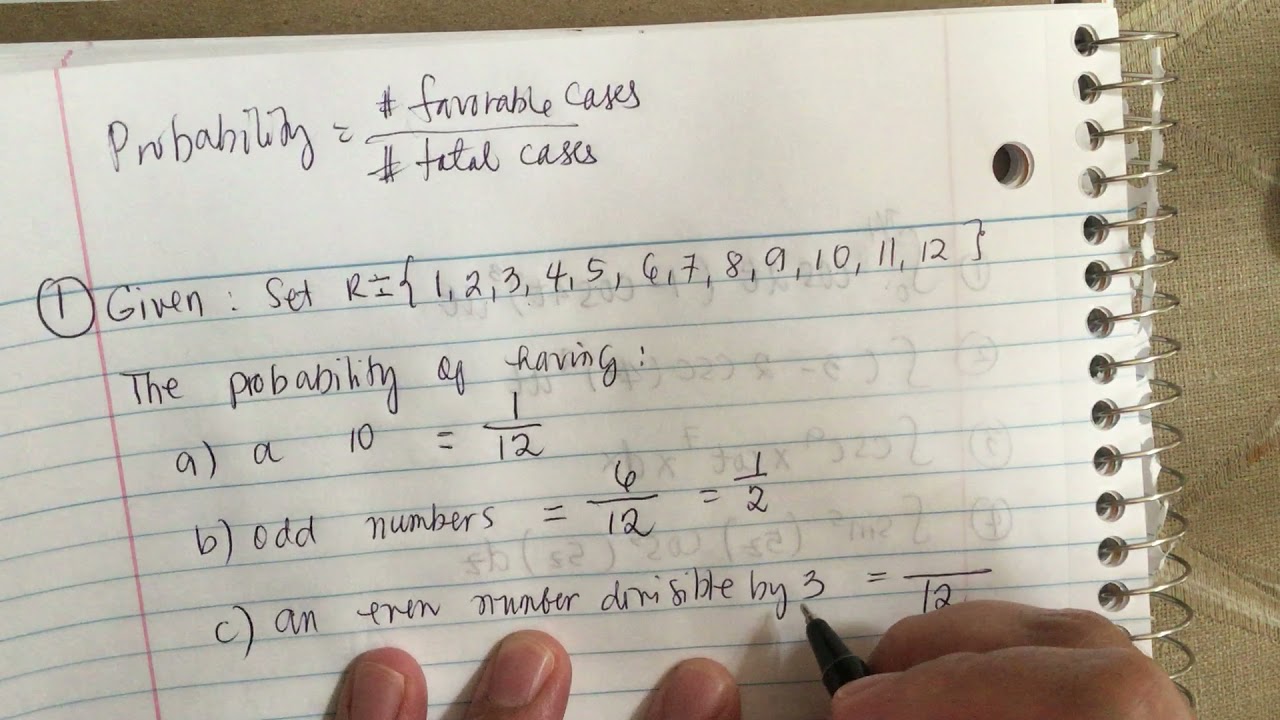 Probability = # favorable cases / # total cases
① Given : Set R = { 1, 2, 3, 4, 5, 6, 7, 8, 9, 10, 11, 12 }
The probability of having :
a) a 10 = 1/12
b) odd numbers = 6/12 = 1/2
c) an even number divisible by 3 = /12